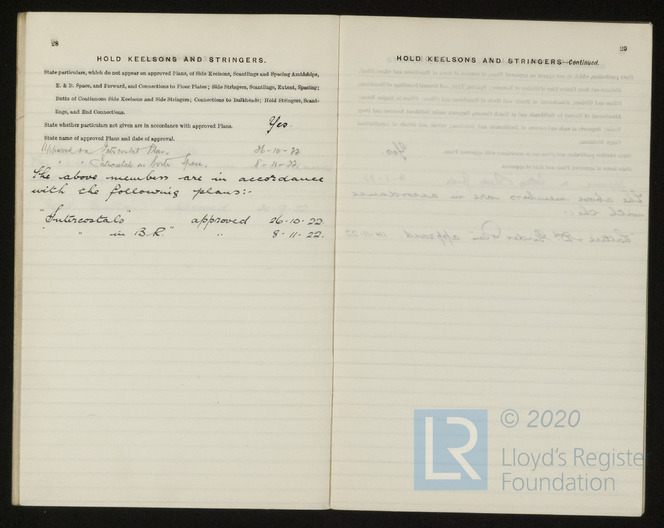 28
HOLD KEELSONS AND STRINGERS.
State particulars, which do not appear on approved Plans, of Side Keelsons, Scantlings and Spacing Amidships,
E. & B. Space, and Forward, and Connections to Floor Plates; Side Stringers, Scantlings, Extent, Spacing;
Butts of Continuous Side Keelsons and Side Stringers; Connections to Bulkheads; Hold Stringers, Scant-
lings, and End Connections.
State whether particulars not given are in accordance with approved Plans. Yes.
State name of approved Plans and date of approval.
Approved on Intercostal Plan. 26-10-22
" " Intercostals in Boiler Space. 8-11-22.
The above members are in accordance
with the following plans:-
"Intercostals" approved 26-10-22
" in B.R" " 8-11-22.
29
HOLD KEELSONS AND STRINGERS—Continued.
LR
© 2020
Lloyd's Register
Foundation